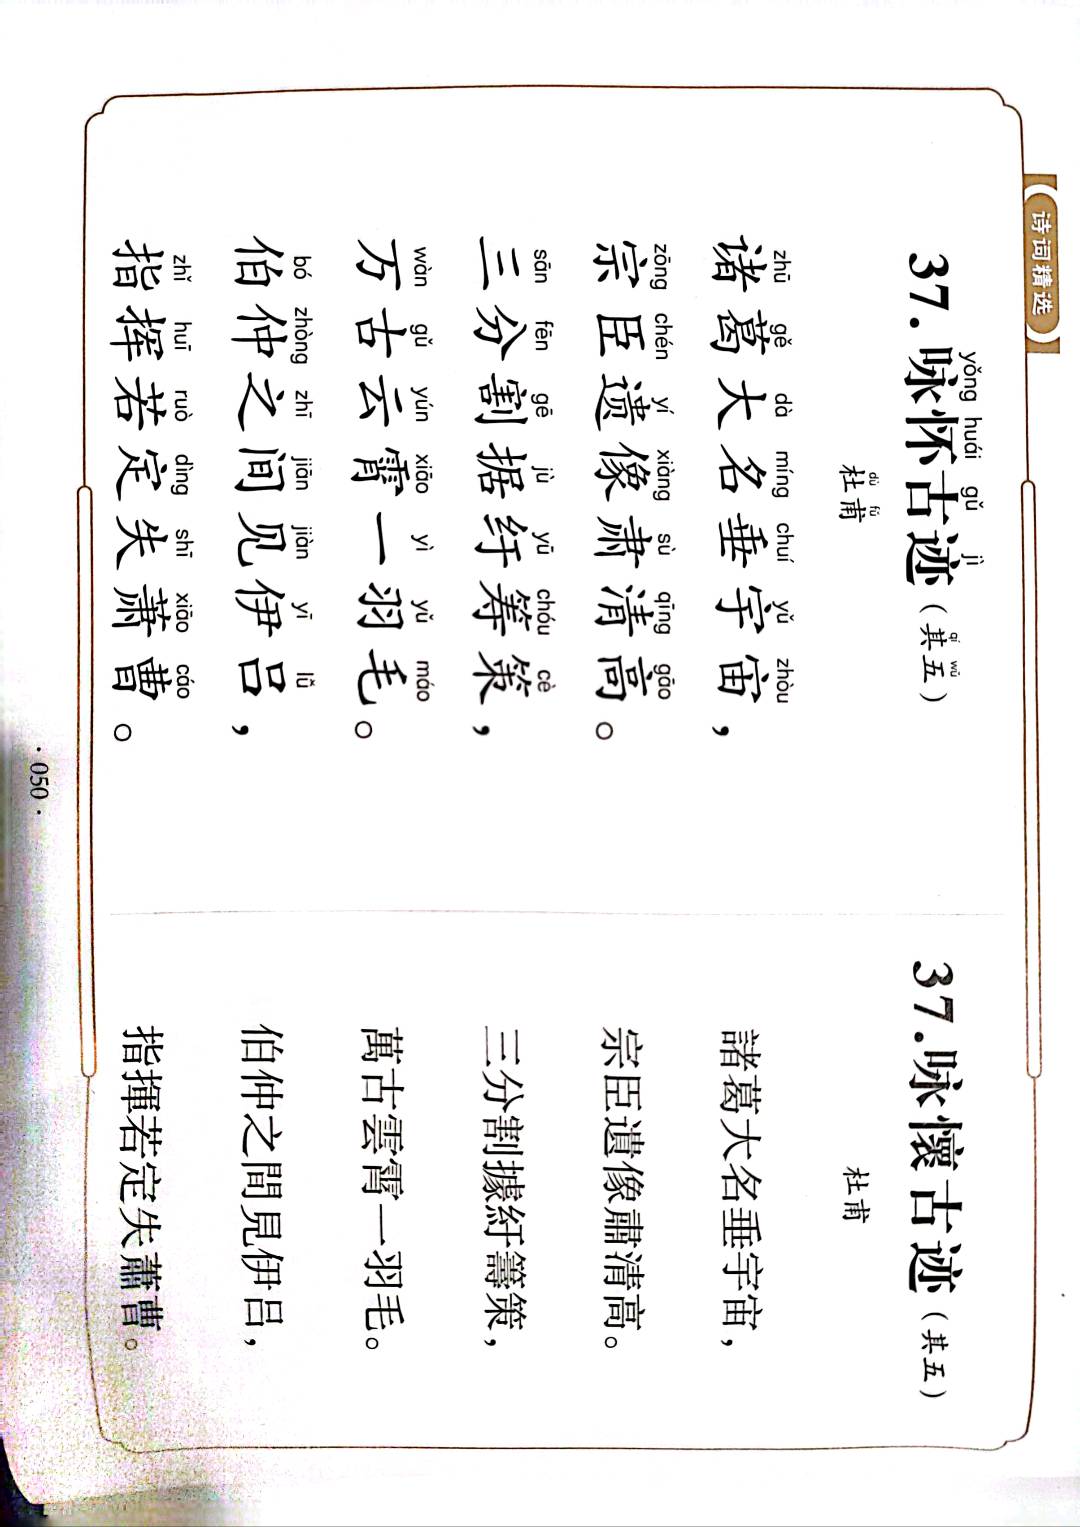 诗词精选
yǒng huái gǔ jì
37.咏怀古迹(其五)
qí wǔ
dù fǔ
杜甫
zhū gě dà míng chuí yǔ zhòu
诸葛大名垂宇宙，
zōng chén yí xiàng sù qīng gāo
宗臣遗像肃清高。
sān fēn gē jù yū chóu cè
三分割据纡筹策，
wàn gǔ yún xiāo yì yǔ máo
万古云霄一羽毛。
bó zhòng zhī jiān jiàn yī lǚ
伯仲之间见伊吕，
zhǐ huī ruò dìng shī xiāo cáo
指挥若定失萧曹。
37.咏懷古迹(其五)
杜甫
諸葛大名垂宇宙，
宗臣遺像肅清高。
三分割據紆籌策，
萬古雲霄一羽毛。
伯仲之間見伊吕，
指揮若定失蕭曹。
·050·